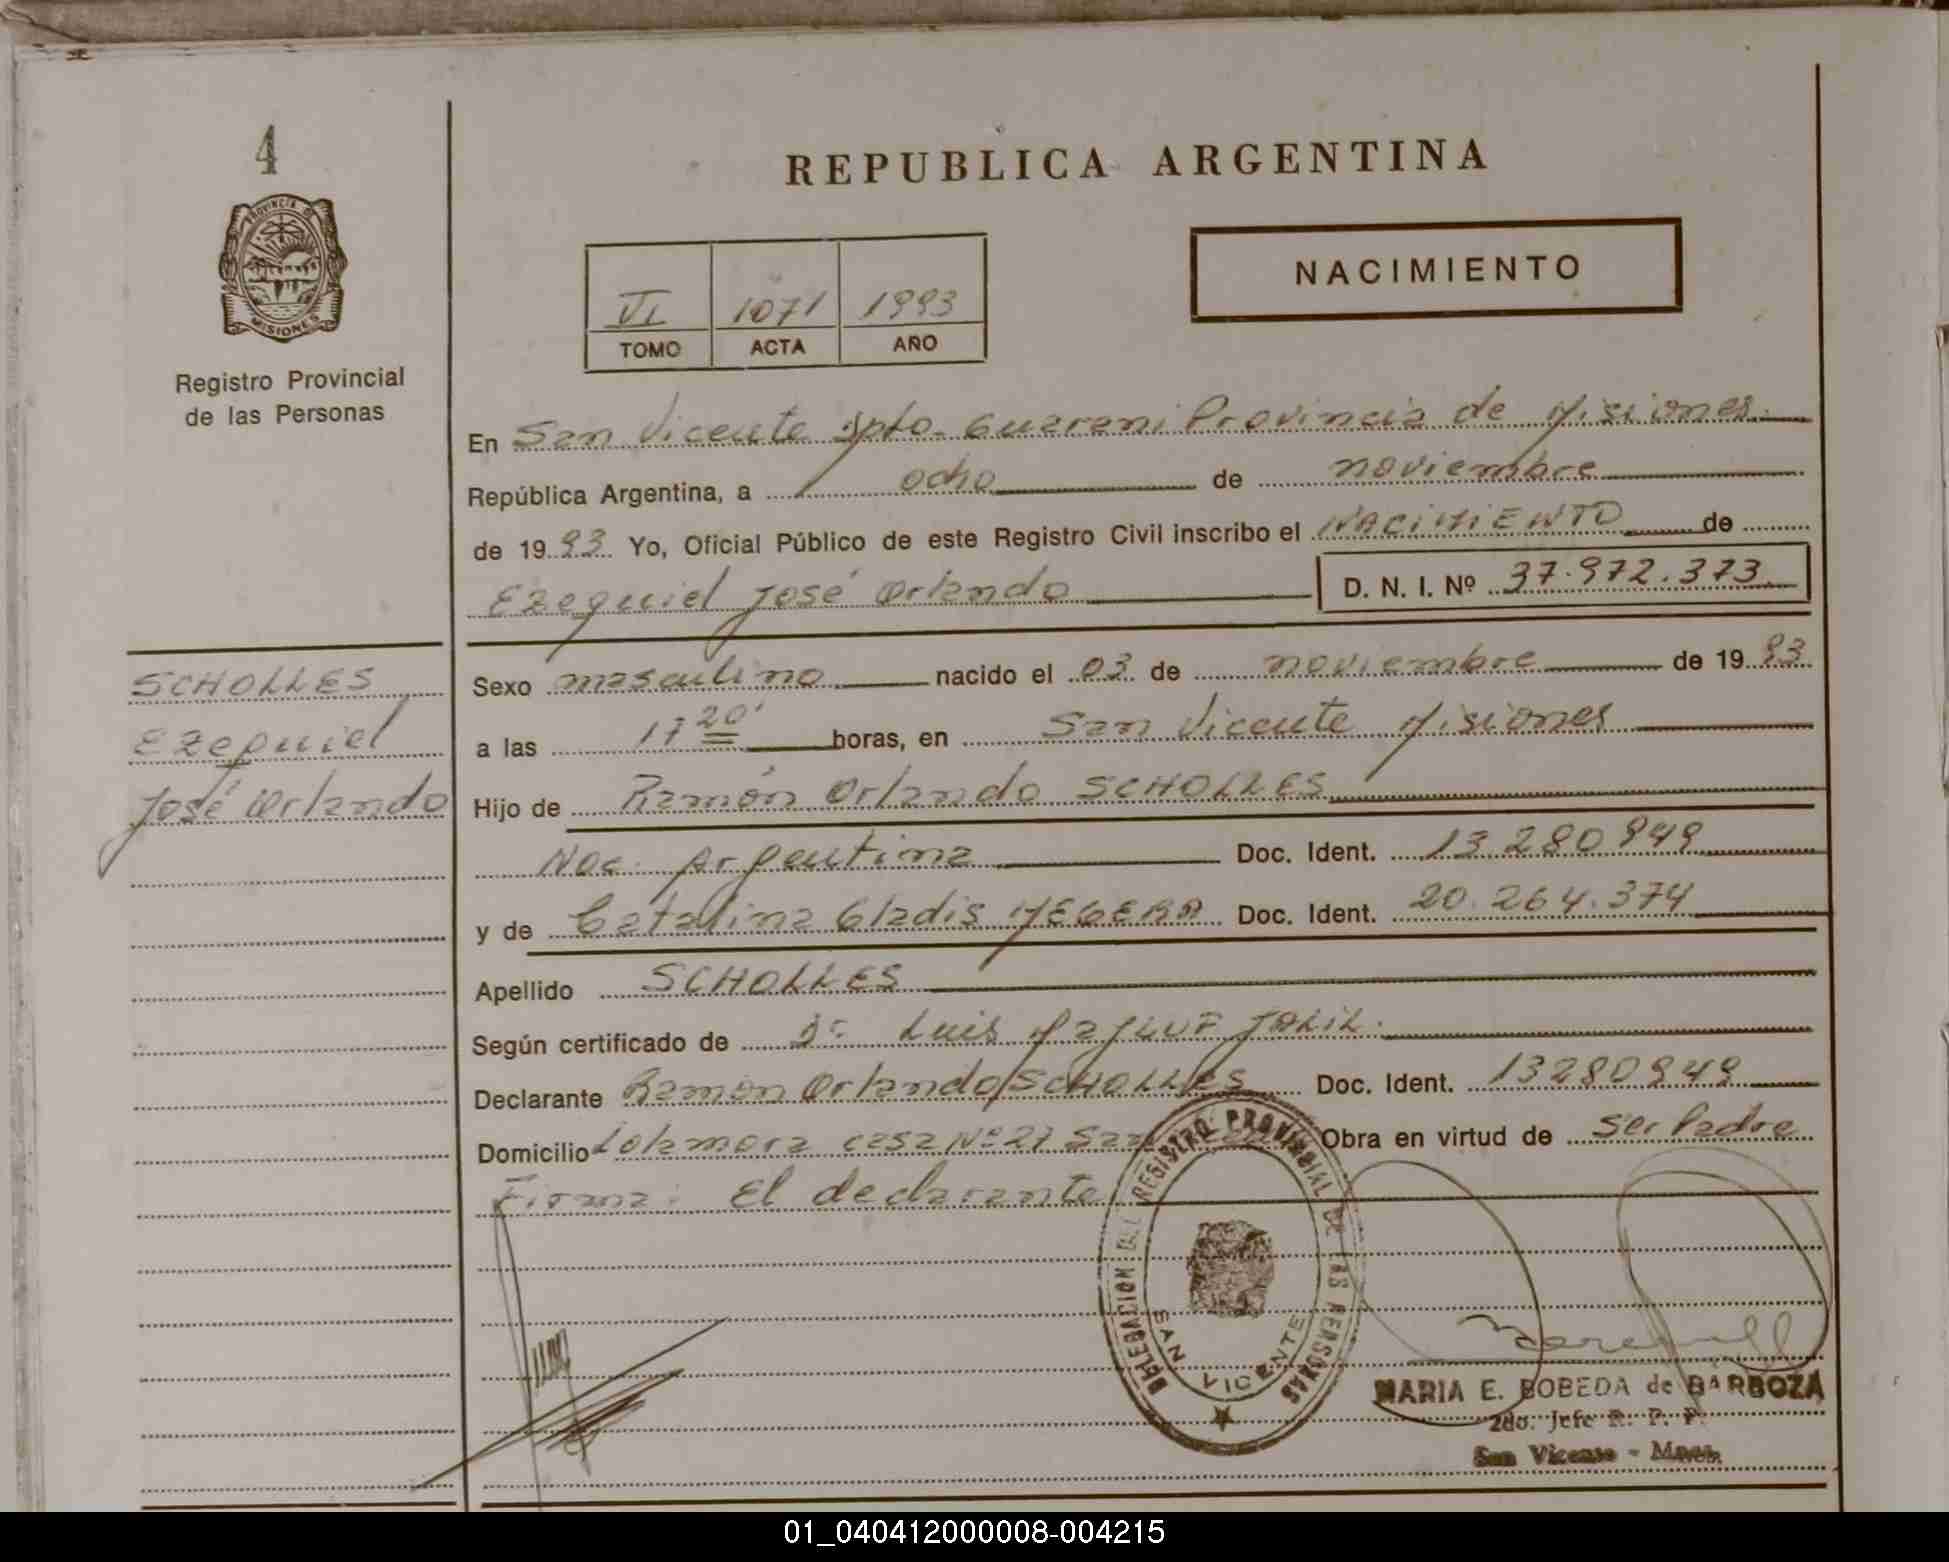 4
PROVINCIA DE
MISIONES
Registro Provincial
de las Personas
SCHOLLES
Ezequiel
José Orlando
REPUBLICA ARGENTINA
NACIMIENTO
VI 1071 1993
TOMO ACTA AÑO
En San Vicente Dpto. Guarani Provincia de Misiones.
República Argentina, a ocho de noviembre
de 1993 Yo, Oficial Público de este Registro Civil inscribo el NACIMIENTO de
Ezequiel José Orlando D. N. I. Nº 37.972.373
Sexo masculino nacido el 03 de noviembre de 1993
a las 17 20' horas, en San Vicente Misiones
Hijo de Ramón Orlando SCHOLLES
Nac. Argentina Doc. Ident. 13.280.949
y de Catalina Gladis Doc. Ident. 20.264.374
Apellido SCHOLLES
Según certificado de Dr. Luis JALIL.
Declarante Ramón Orlando SCHOLLES Doc. Ident. 13280949
Domicilio Lolamora casa Nº 27 San Obra en virtud de ser Padre
Firma: El declarante
DELEGACION DEL REGISTRO PROVINCIAL DE LAS PERSONAS
SAN VICENTE
MARIA E. BOBEDA de BARBOZA
2do. Jefe R. P. P.
San Vicente - Mnes.
01_040412000008-004215